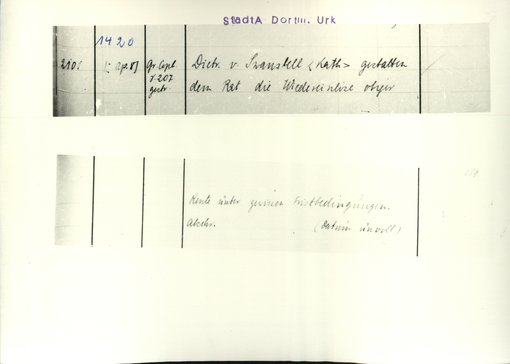 StadtA Dortm. Urk
1420
2101 [: Apr. 8] Gr. Copb. Dietr. v. Swanstell <Kath> gestatten
f. 207 dem Rat die Wiedereinlöse obiger
gestr.
Rente unter gewissen Fristbedingungen.
Abschr. (Datum unvoll)